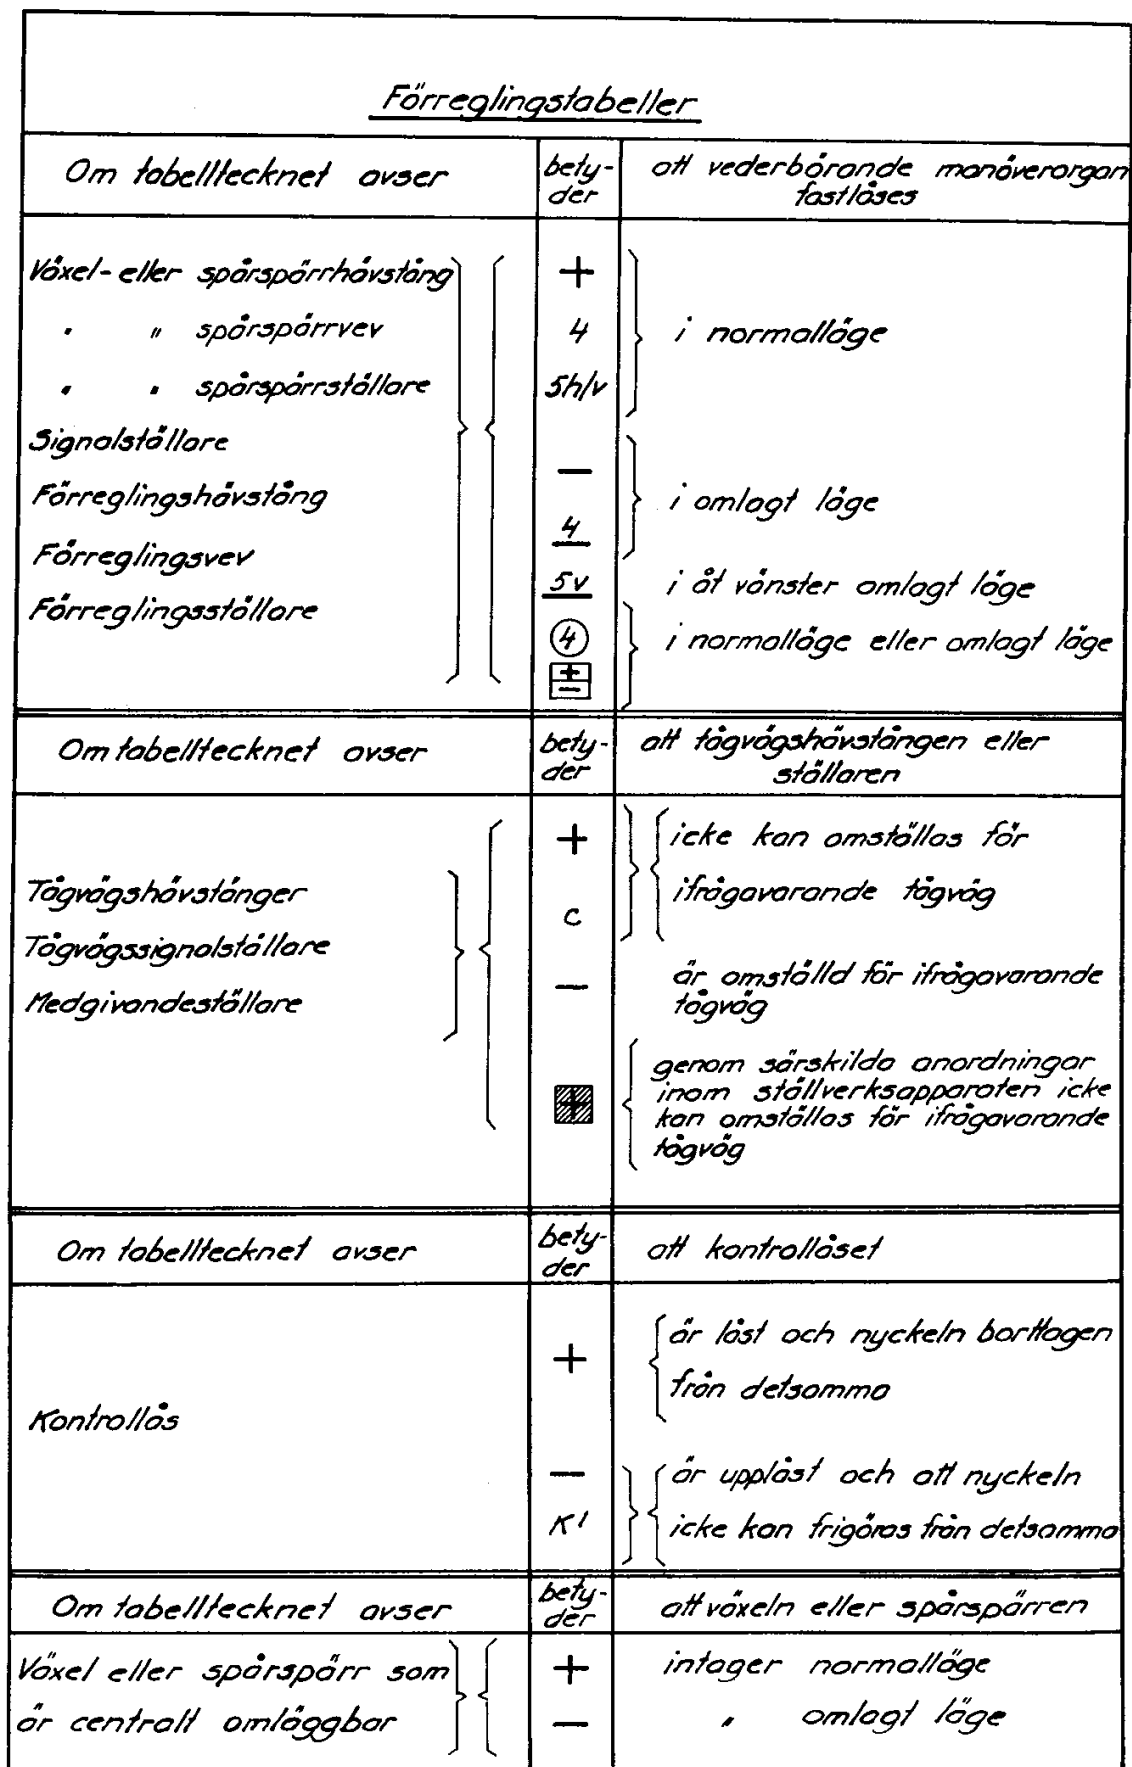 Förreglingstabeller
Om tabelltecknet avser
bety-
der
att vederbörande manöverorgan
fastlåses
Växel- eller spårspärrhävstång
" " spårspärrvev
" " spårspärrställare
Signalställare
Förreglingshävstång
Förreglingsvev
Förreglingsställare
+
4
5h/v
i normalläge
—
4
i omlagt läge
5v
i åt vänster omlagt läge
4
+
—
i normalläge eller omlagt läge
Om tabelltecknet avser
bety-
der
att tågvägshävstången eller
ställaren
Tågvägshävstänger
Tågvägssignalställare
Medgivandeställare
+
C
icke kan omställas för
ifrågavarande tågväg
—
är omställd för ifrågavarande
tågväg
+
genom särskilda anordningar
inom ställverksapparaten icke
kan omställas för ifrågavarande
tågväg
Om tabelltecknet avser
bety-
der
att kontrollåset
Kontrollås
+
är låst och nyckeln borttagen
från detsamma
—
K1
är upplåst och att nyckeln
icke kan frigöras från detsamma
Om tabelltecknet avser
bety-
der
att växeln eller spårspärren
Växel eller spårspärr som
är centralt omläggbar
+
intager normalläge
—
" omlagt läge